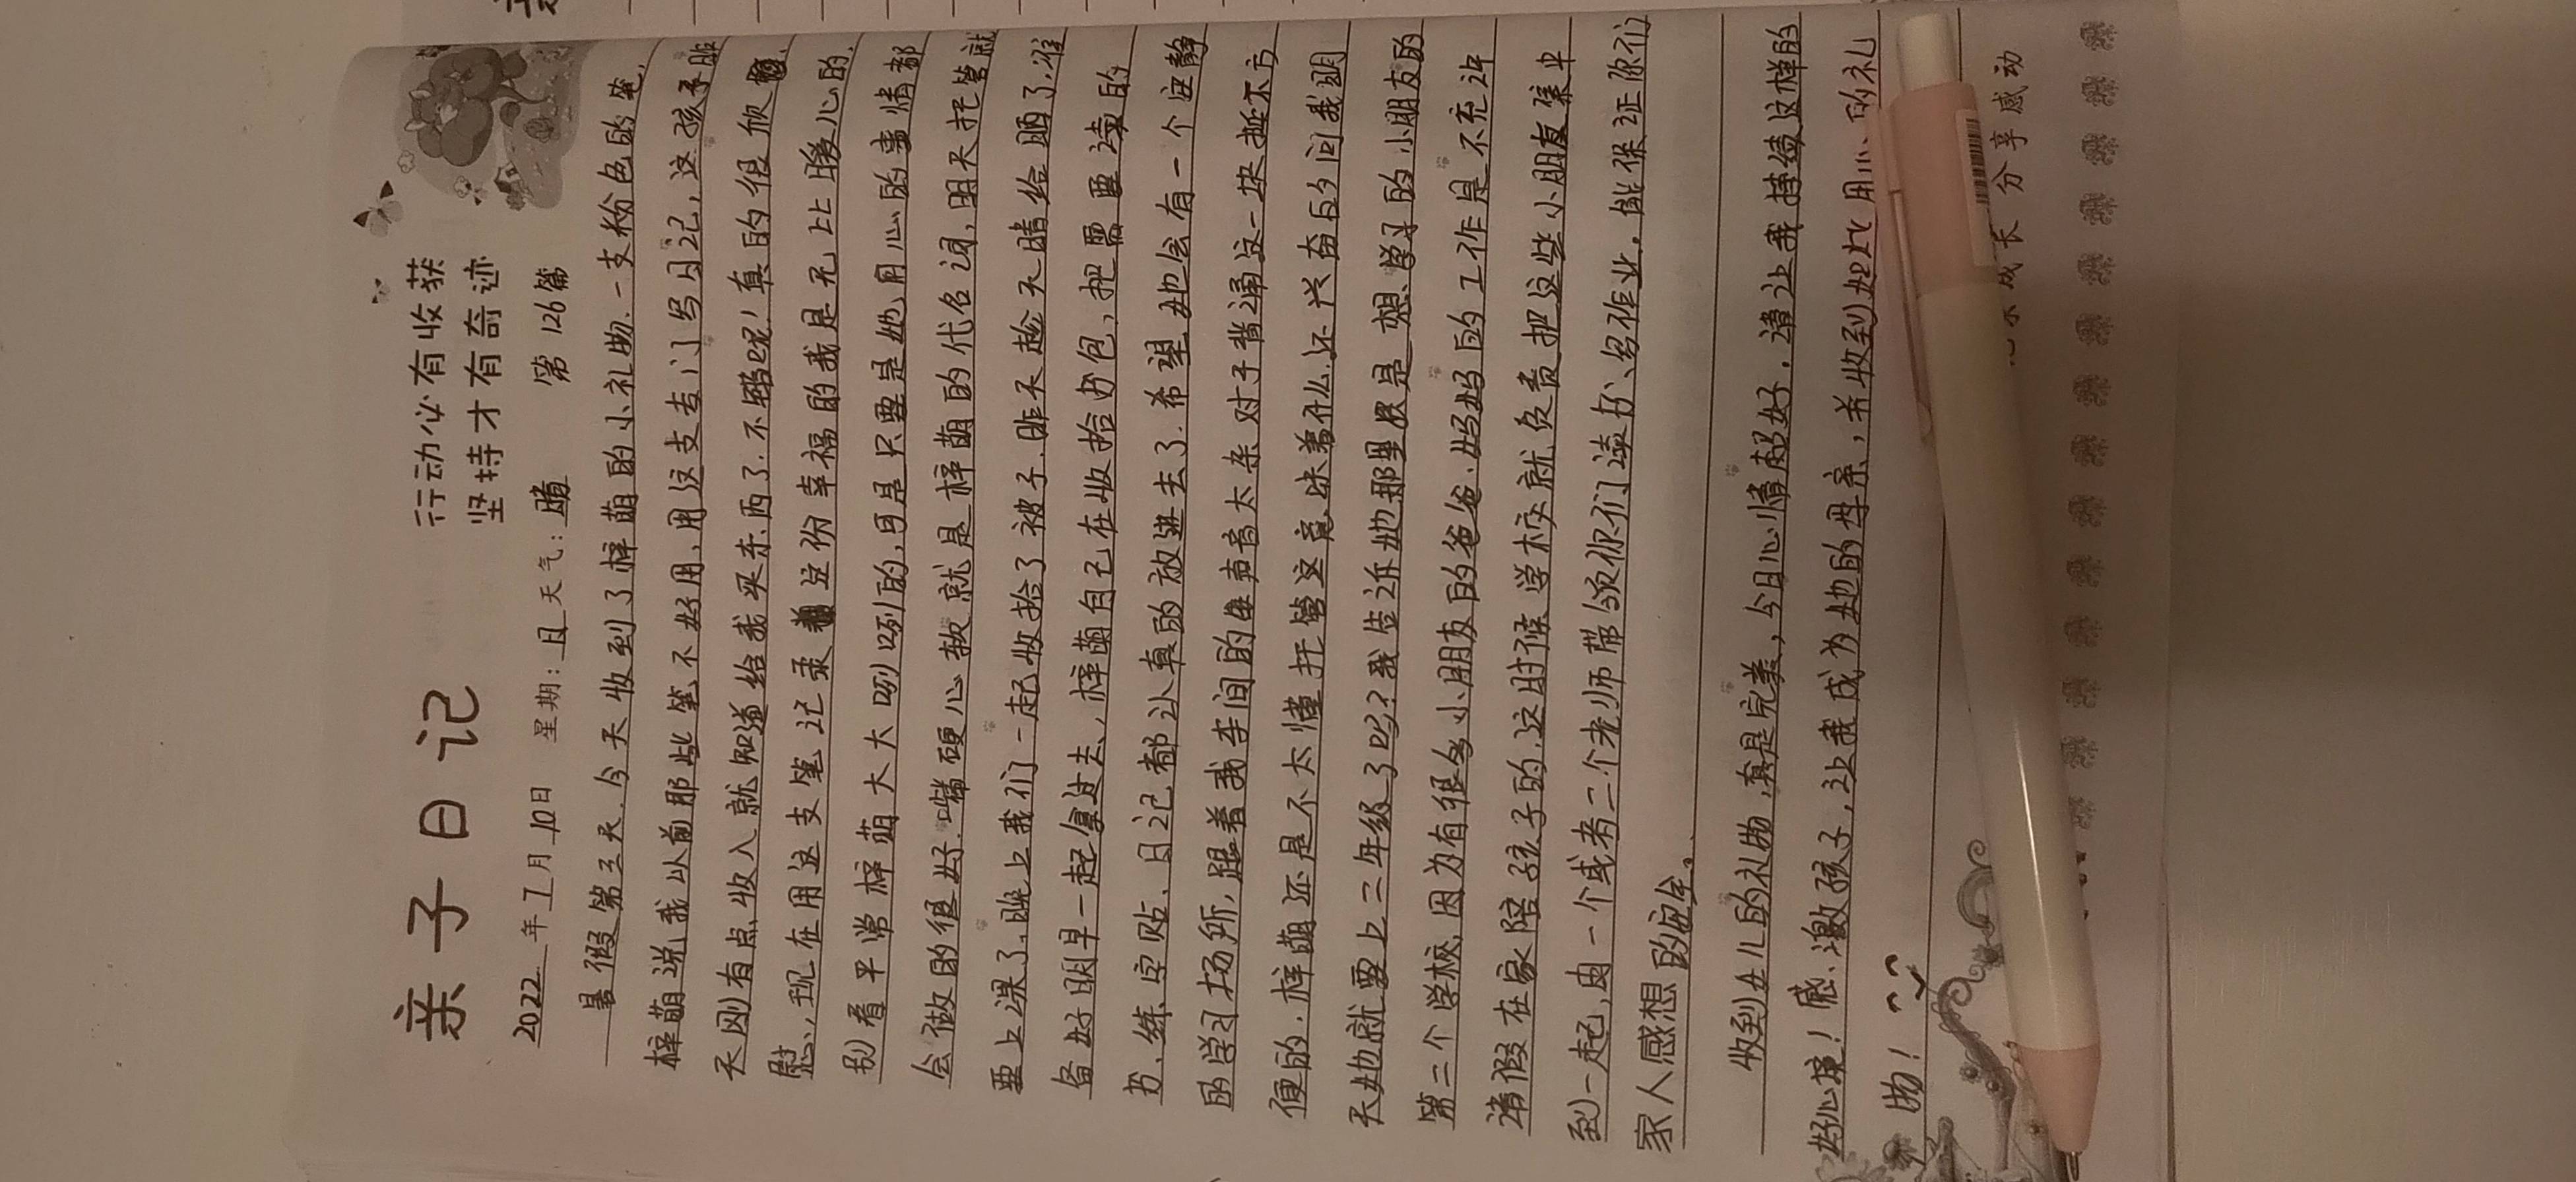 亲子日记
行动必有收获
坚持才有奇迹
2022年7月10日 星期:日 天气:晴 第126篇
暑假第三天.今天收到了梓萌的小礼物.一支粉色的笔.
梓萌说我以前那些笔不好用,用这支专门写日记,这孩子昨
天刚有点收入就知道给我买东西了.不错哦!真的很欣
慰,现在用这支笔记录这份幸福的我是无比暖心的.
别看平常梓萌大大咧咧的,可是只要是她用心的事情都
会做的很好.嘴硬心软就是梓萌的代名词,明天托管就
要上课了,晚上我们一起收拾了被子.昨天趁天晴给晒了.准
备好明早一起拿过去,梓萌自己在收拾书包,把需要读的
书、练字贴、日记都认真的放进去了.希望她会有一个安静
的学习场所,跟着我李间的每声音太杂对于背诵这一块挺不方
便的,梓萌还是不太懂托管这意味着什么.还兴奋的问我明
天她就要上三年级了吗?我告诉她那里只是想学习的小朋友的
第三个学校,因为有很多小朋友的爸爸.妈妈的工作是不允许
请假在家陪孩子的.这时候学校就负责把这些小朋友集中
到一起,由一个或者二个老师带领你们读书、写作业,能保证你们
的安全。
家人感想
收到女儿的礼物,真是完美,今日心情超好,请让我持续这样的
好心情!感激孩子,让我成为她的母亲,并收到如此用心的礼
物!
成长 分享感动